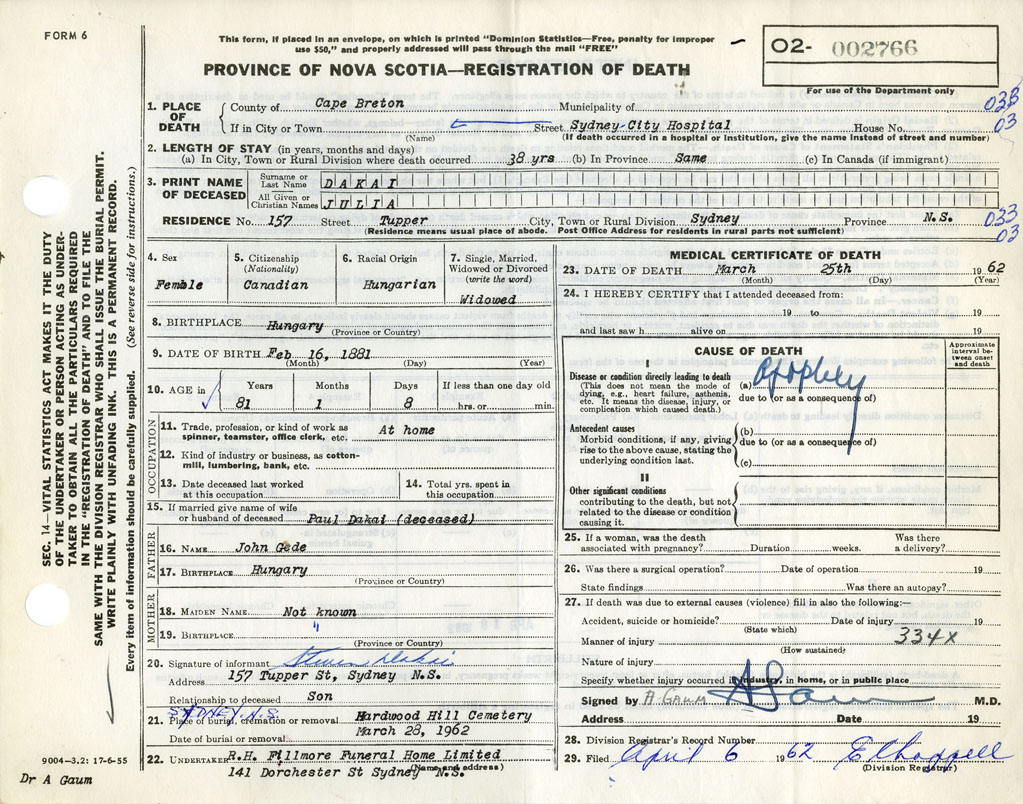 FORM 6
This form, if placed in an envelope, on which is printed "Dominion Statistics—Free, penalty for improper
use $50," and properly addressed will pass through the mail "FREE"
PROVINCE OF NOVA SCOTIA—REGISTRATION OF DEATH
02- 002766
For use of the Department only
1. PLACE OF DEATH County of Cape Breton Municipality of 03B
If in City or Town Street Sydney City Hospital House No. 03
(Name) (If death occurred in a hospital or institution, give the name instead of street and number)
2. LENGTH OF STAY (in years, months and days)
(a) In City, Town or Rural Division where death occurred 38 yrs (b) In Province Same (c) In Canada (if immigrant)
3. PRINT NAME OF DECEASED Surname or Last Name DAKAI
All Given or Christian Names JULIA
RESIDENCE No. 157 Street Tupper City, Town or Rural Division Sydney Province N.S. 033
(Residence means usual place of abode. Post Office Address for residents in rural parts not sufficient) 03
4. Sex Female
5. Citizenship (Nationality) Canadian
6. Racial Origin Hungarian
7. Single, Married, Widowed or Divorced (write the word) Widowed
8. BIRTHPLACE Hungary
(Province or Country)
9. DATE OF BIRTH Feb 16, 1881
(Month) (Day) (Year)
10. AGE in Years Months Days If less than one day old
81 1 8 hrs. or min.
OCCUPATION
11. Trade, profession, or kind of work as spinner, teamster, office clerk, etc. At home
12. Kind of industry or business, as cotton-mill, lumbering, bank, etc.
13. Date deceased last worked at this occupation
14. Total yrs. spent in this occupation
15. If married give name of wife or husband of deceased Paul Dakai (deceased)
FATHER
16. NAME John Gede
17. BIRTHPLACE Hungary
(Province or Country)
MOTHER
18. MAIDEN NAME Not known
19. BIRTHPLACE "
(Province or Country)
20. Signature of informant Steven Dakai
Address 157 Tupper St, Sydney N.S.
Relationship to deceased Son
SYDNEY, N.S.
21. Place of burial, cremation or removal Hardwood Hill Cemetery
Date of burial or removal March 28, 1962
22. UNDERTAKER R.H. Fillmore Funeral Home Limited
141 Dorchester St Sydney N.S.
(Name and address)
MEDICAL CERTIFICATE OF DEATH
23. DATE OF DEATH March 25th 1962
(Month) (Day) (Year)
24. I HEREBY CERTIFY that I attended deceased from:
19 to 19
and last saw h alive on 19
CAUSE OF DEATH
Approximate interval between onset and death
I
Disease or condition directly leading to death
(This does not mean the mode of dying, e.g., heart failure, asthenia, etc. It means the disease, injury, or complication which caused death.)
(a) Apoplexy
due to (or as a consequence of)
Antecedent causes
Morbid conditions, if any, giving rise to the above cause, stating the underlying condition last.
(b)
due to (or as a consequence of)
(c)
II
Other significant conditions
contributing to the death, but not related to the disease or condition causing it.
25. If a woman, was the death associated with pregnancy? Duration weeks. Was there a delivery?
26. Was there a surgical operation? Date of operation 19
State findings Was there an autopsy?
27. If death was due to external causes (violence) fill in also the following:—
Accident, suicide or homicide? Date of injury 19
(State which)
Manner of injury 334X
(How sustained)
Nature of injury
Specify whether injury occurred in industry, in home, or in public place
Signed by A GAUM A Gaum M.D.
Address Date 19
28. Division Registrar's Record Number
29. Filed April 6 1962
(Division Registrar)
SEC. 14—VITAL STATISTICS ACT MAKES IT THE DUTY
OF THE UNDERTAKER OR PERSON ACTING AS UNDER-
TAKER TO OBTAIN ALL THE PARTICULARS REQUIRED
IN THE "REGISTRATION OF DEATH" AND TO FILE THE
SAME WITH THE DIVISION REGISTRAR WHO SHALL ISSUE THE BURIAL PERMIT.
WRITE PLAINLY WITH UNFADING INK. THIS IS A PERMANENT RECORD.
Every item of information should be carefully supplied. (See reverse side for instructions.)
9004—3.2: 17-6-55
Dr A Gaum